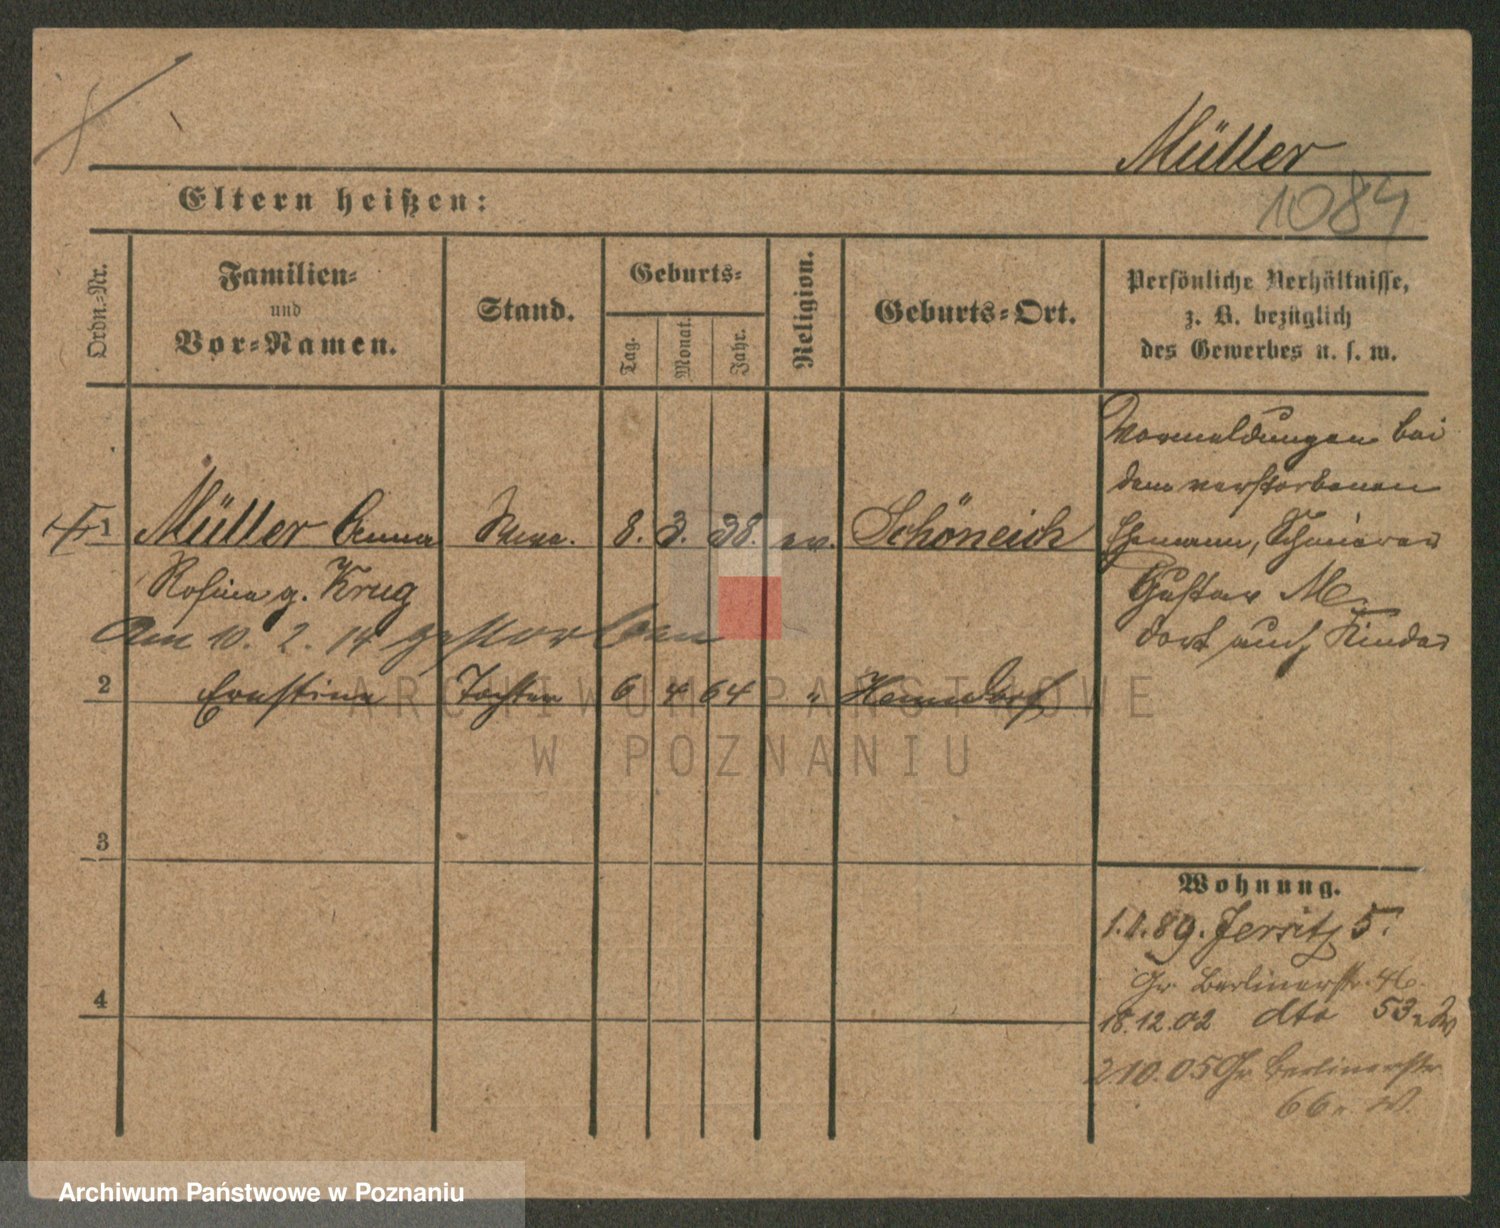 Müller
1084
Eltern heißen:
Ordn.-Nr.
Familien-
und
Vor-Namen.
Stand.
Geburts-
Tag.
Monat.
Jahr.
Religion.
Geburts-Ort.
Persönliche Verhältnisse,
z. B. bezüglich
des Gewerbes u. s. w.
Vormeldungen bei
dem verstorbenen
Ehemann,
Gustav M.
dort auch Kinder
1 Müller Anna Wwe. 8. 3. 38. ev. Schöneich
Rosina g. Krug
Am 10. 2. 14 gestorben
2 Ernstine Tochter 6 4 64 " Henndorf
3
4
Wohnung.
1.1.89. Jersitz 5.
Gr. Berlinerstr. 46.
18.12.02 dto 53
2.10.05 Gr. Berlinerstr
66
ARCHIWUM PAŃSTWOWE
W POZNANIU
Archiwum Państwowe w Poznaniu